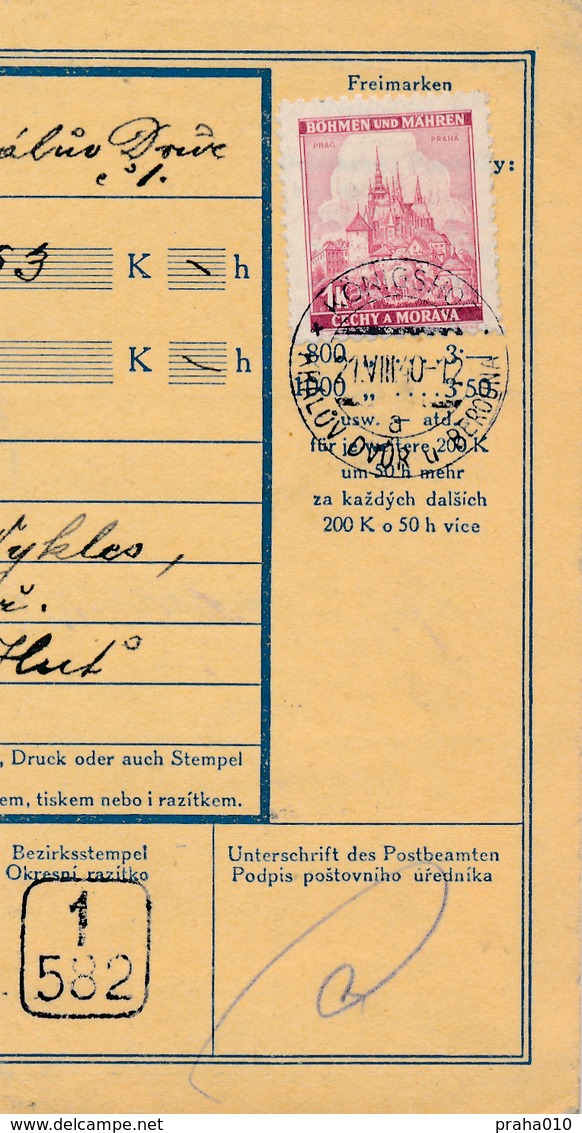 Freimarken
álův Dvůr
č/.
BÖHMEN UND MÄHREN
PRAG. PRAHA
y:
53 K h
1K
ČECHY A MORAVA
KÖNIGSHO
21.VIII.40-12
a
KRÁLŮV DVŮR u BEROUNA
K h
800 „ 3·—
1000 „ .... 3·50
usw. — atd.
für je weitere 200 K
um 50 h mehr
za každých dalších
200 K o 50 h více
Vykles,
Hut
, Druck oder auch Stempel
em, tiskem nebo i razítkem.
Bezirksstempel
Okresní razítko
1
582
Unterschrift des Postbeamten
Podpis poštovního úředníka
praha010